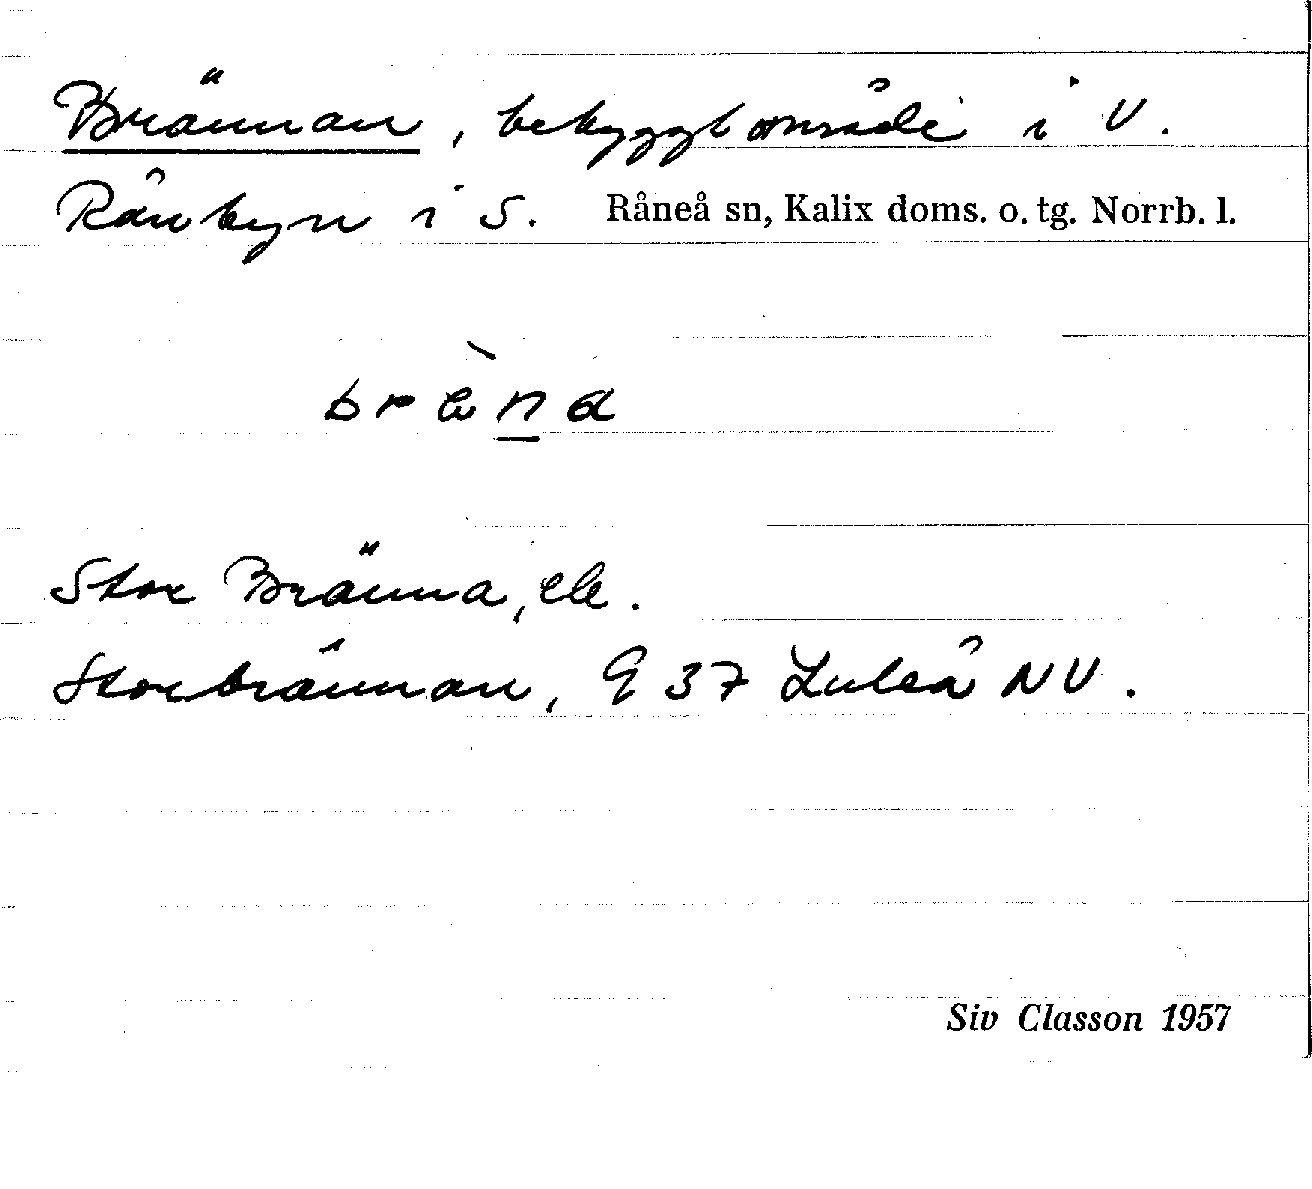 Brännan, bebyggt område i V.
Rånbyn i S. Råneå sn, Kalix doms. o. tg. Norrb. l.
Stor Bränna, ek.
Storbrännan, 9 37 Luleå NV.
Siv Classon 1957